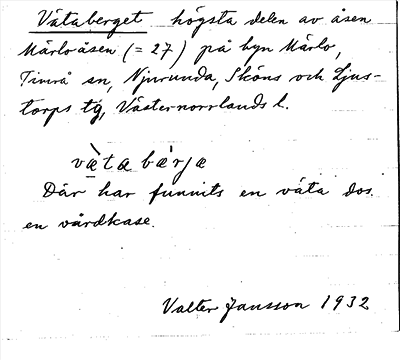 Vätaberget högsta delen av åsen
Märloåsen (= 27) på byn Märlo,
Timrå sn, Njurunda, Sköns och Ljus-
torps tg, Västernorrlands l.
væ̀ta bæ̀rjæ
Där har funnits en väta dos.
en vårdkase.
Valter Jansson 1932